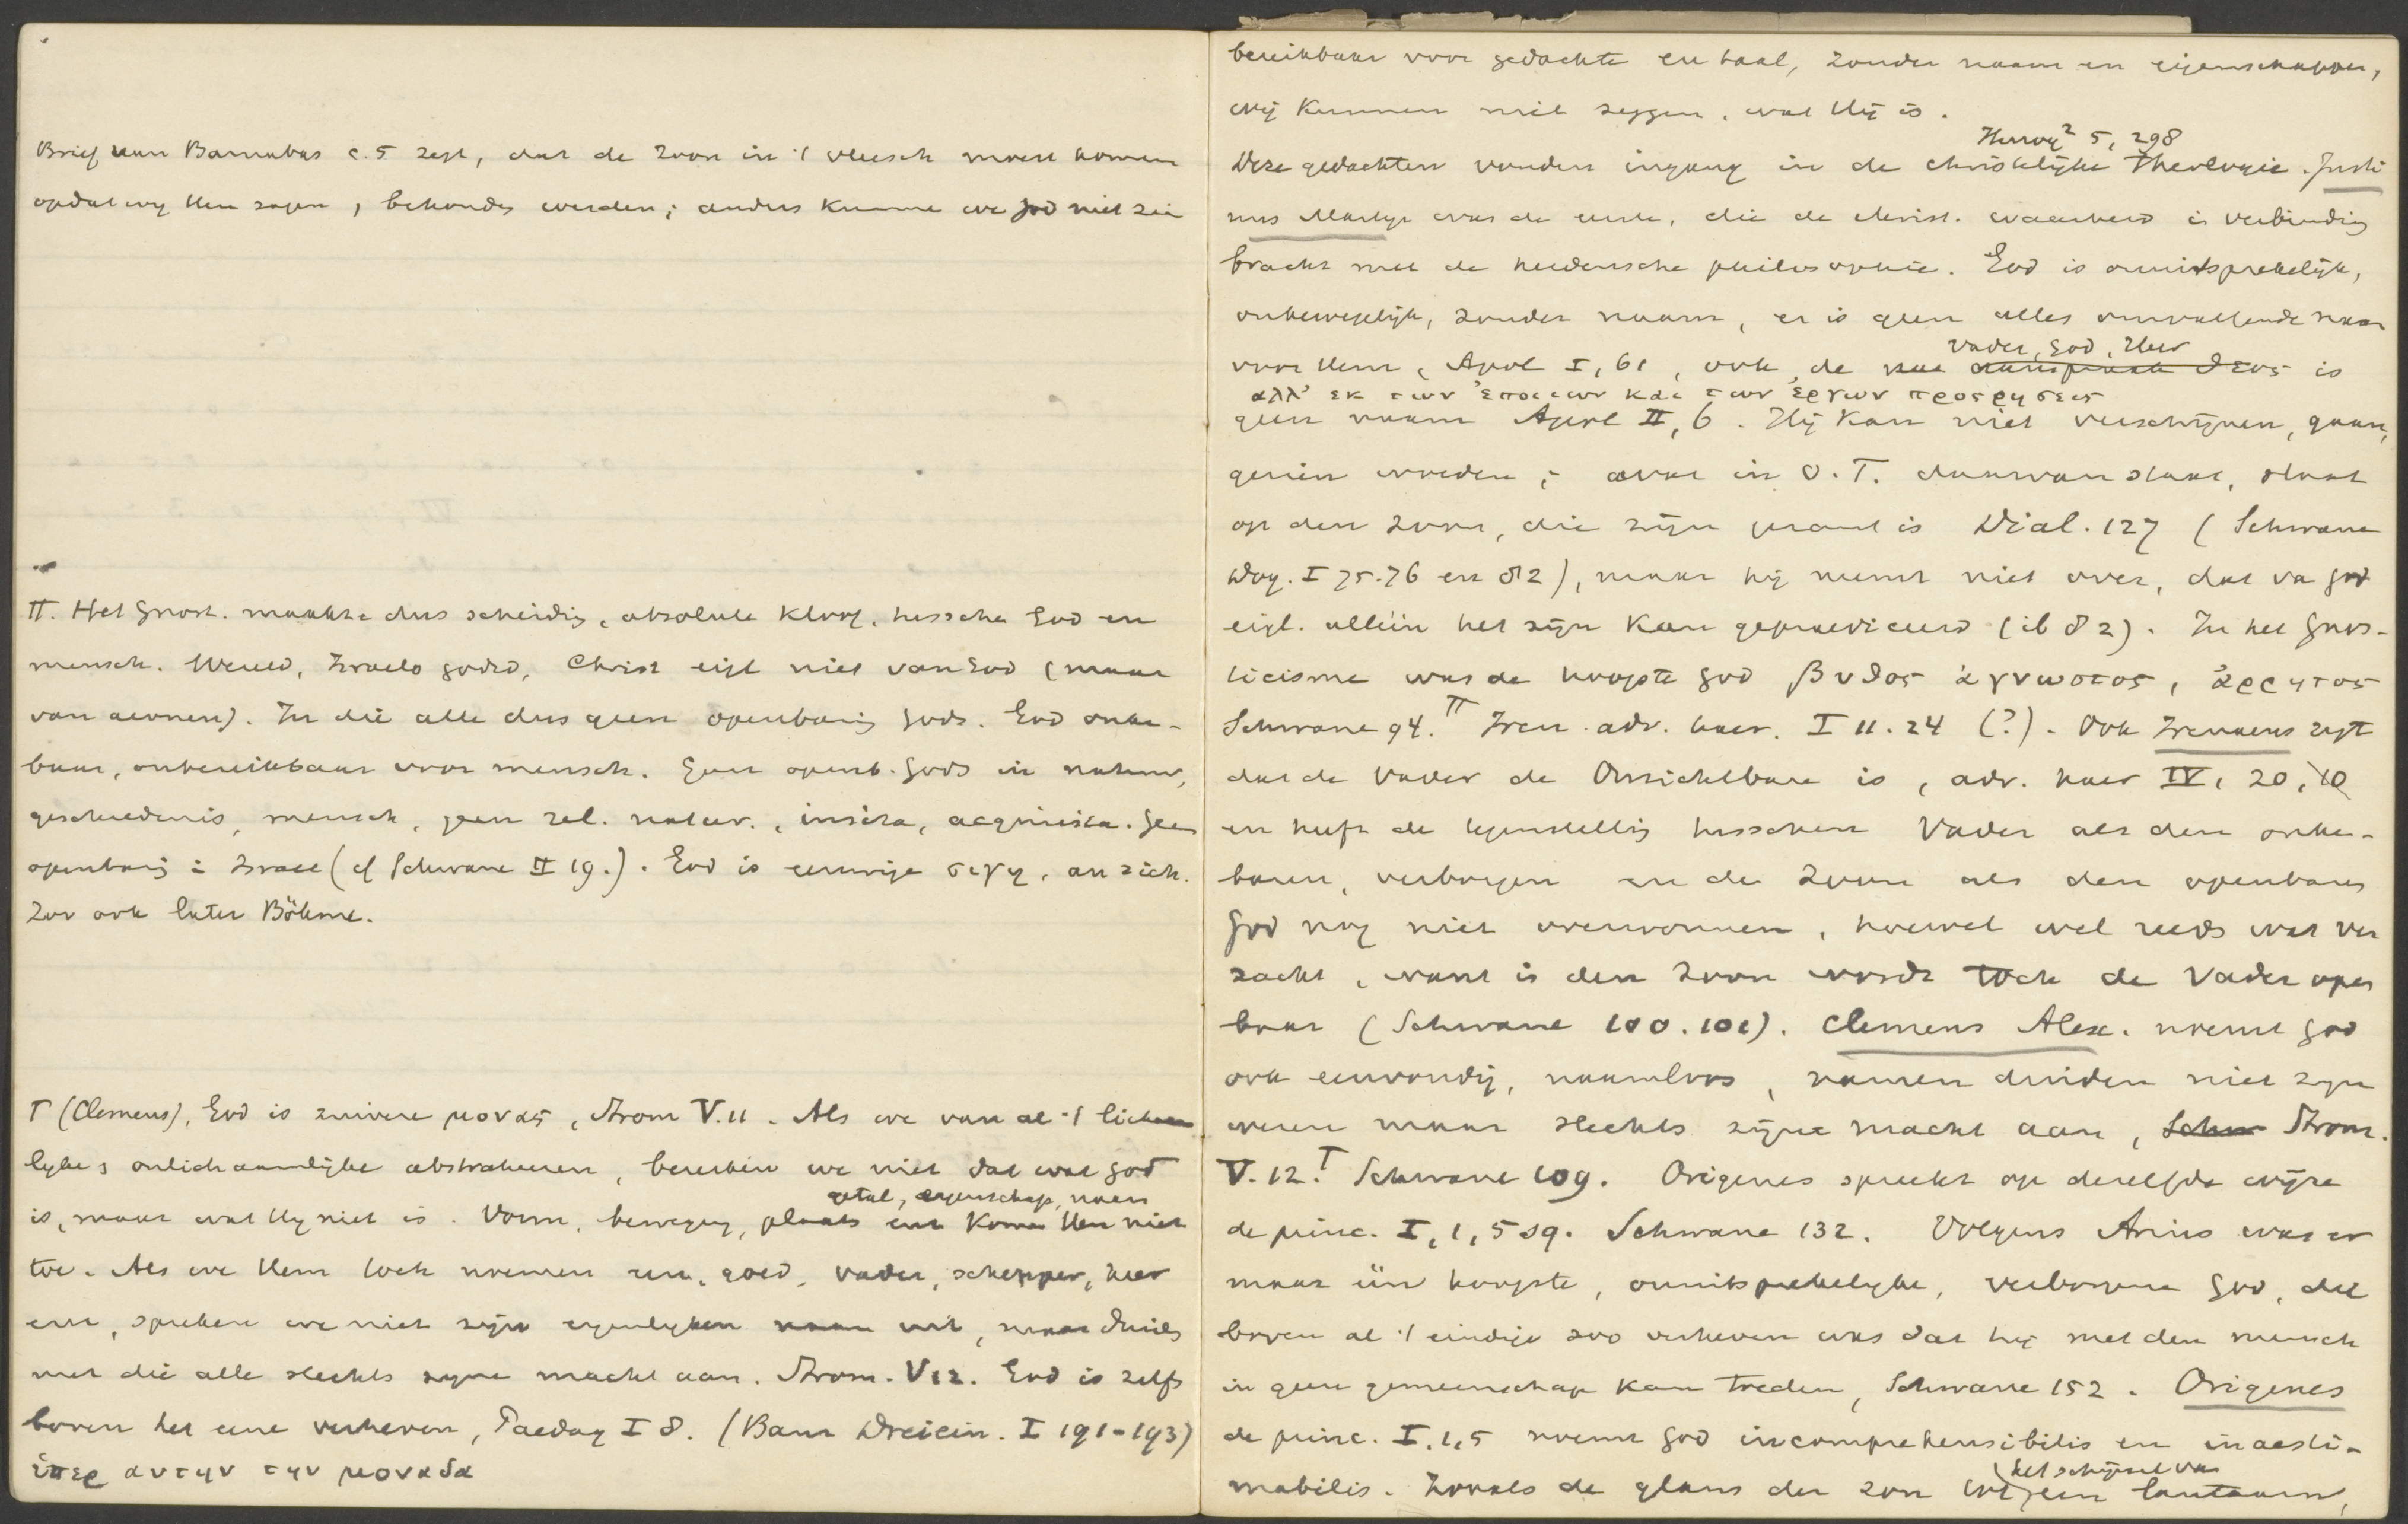 Brief van Barnabas c. 5 zegt, dat de Zoon in 't vleesch moest komen
opdat wij Hem zagen, behouden werden; anders kunnen we God niet zien
π. Het Gnost. maakte dus scheidig, absolute kloof, tusschen God en
mensch. Wereld, Israels godsd, Christ eigl niet van God (maar
van aeonen). In die alle dus geen openbarig Gods. God onken-
baar, onbereikbaar voor mensch. Geen openb. Gods in natuur,
geschiedenis, mensch, geen rel. natur., insita, acquisita. Geen
openbarig i Israel (cf Schwane II 19.). God is eeuwige σιγη, an sich.
Zoo ook later Böhme.
T (Clemens), God is zuivere μονας, Strom V.11. Als we van al 't licham
lijke & onlichamelijke abstraheeren, bereiken we niet dat wat God
getal, eigenschap, naam
is, maar wat Hij niet is. Vorm, beweging, plaats enz komen Hem niet
toe. Als we Hem toch noemen een, goed, vader, schepper, heer
enz, spreken we niet zijn eigenlijken naam uit, maar duiden
met die alle slechts zijne macht aan. Strom. V 12. God is zelfs
boven het eene verheven, Paedag I 8. (Baur Dreiein. I 191-193)
ὑπερ αυτην την μοναδα
bereikbaar voor gedachte en taal, zonder naam en eigenschappen,
wij kunnen niet zeggen, wat Hij is.
Herzog² 5, 298
Deze gedachten vonden ingang in de christelijke theologie. Justi
nus Martyr was de eerste, die de christ. waarheid i verbinding
bracht met de heidensche philosophie. God is onuitsprekelijk,
onbewegelijk, zonder naam, er is geen alles omvattende naam
Vader, God, Heer
voor Hem, Apol I, 61, ook de naam θεος is
αλλ' εκ των ἐποιιων και των ἐργων προσρησεις
geen naam Apol II, 6. Hij kan niet verschijnen, gaan,
gezien worden; wat in O.T. daarvan staat, slaat
op den Zoon, die zijn gezant is Dial. 127 (Schwane
Dog. I 75.76 en 82), maar hij neemt niet over, dat va God
eigl. alleen het zijn kan gepraediceerd (ib 82). In het Gnos-
ticisme was de hoogste God βυθος ἀγνωστος, ἀρρητος
Schwane 94. π Iren. adv. haer. I 11. 24 (?). Ook Irenaeus zegt
dat de Vader de Onzichtbare is, adv. haer IV, 20, 10
en heeft de tegenstellig tusschen Vader als den onken-
baren, verborgen en de Zoon als den openbaren
God nog niet overwonnen, hoewel wel reeds wat ver
zacht, want in den Zoon wordt toch de Vader open
baar (Schwane 100.101). Clemens Alex. noemt God
ook eenvoudig, naamloos, namen duiden niet zijn
wezen maar slechts zijne macht aan, Schw Strom.
V. 12. T Schwane 109. Origenes spreekt op dezelfde wijze
de princ. I, 1, 5 sq. Schwane 132. Volgens Arius was er
maar één hoogste, onuitsprekelijke, verborgene God, die
boven al 't eindige zoo verheven was dat hij met den mensch
in geen gemeenschap kan treden, Schwane 152. Origenes
de princ. I. 1, 5 noemt God incomprehensibilis en inaesti-
het schijnsel van
mabilis. Zooals de glans der zon tot een lantaarn,